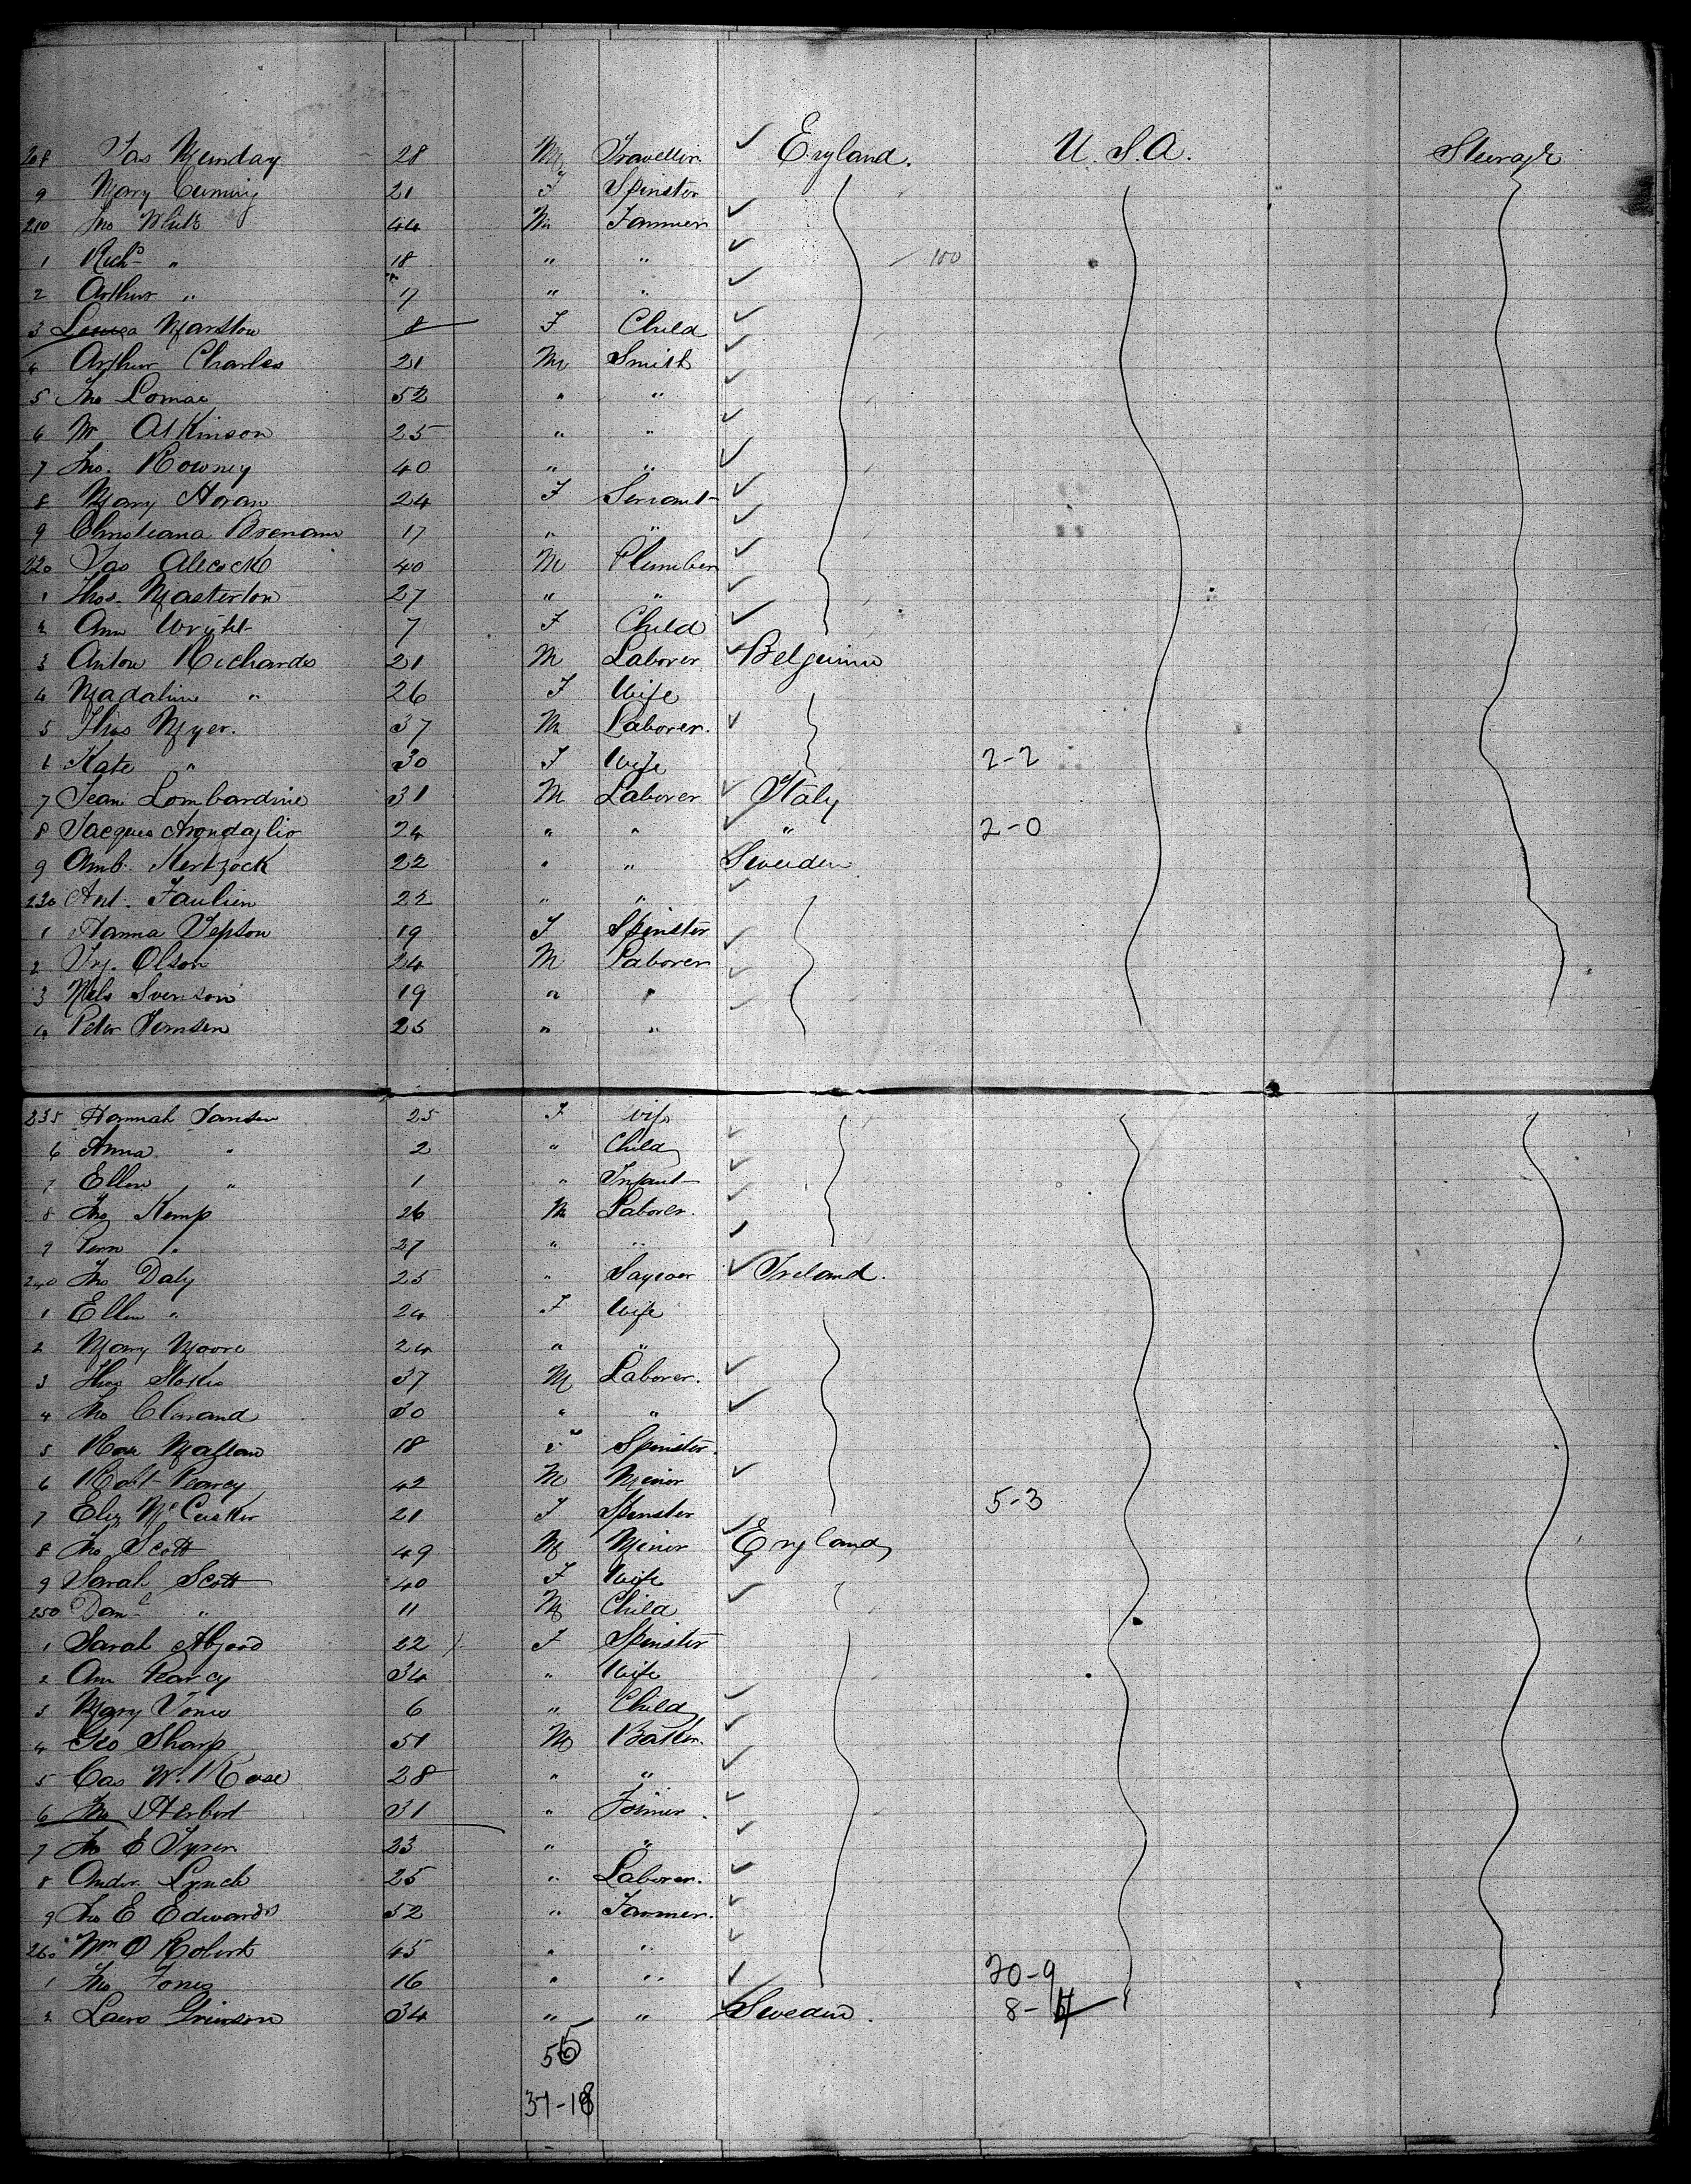 208 Jas Munday 28 M Traveller England. U.S.A. Steerage
9 Mary Cuming 21 F Spinster
210 Jno White 44 M Farmer
1 Richd " 18 " " 100
2 Arthur " 17 " "
3 Louisa Marston 8 F Child
4 Arthur Charles 21 M Smith
5 Jno Lomac 52 " "
6 W Atkinson 25 " "
7 Jno. Rowney 40 " "
8 Mary Horan 24 F Servant
9 Christiana Brenann 17 " "
220 Jas Alcock 40 M Plumber
1 Thos. Masterton 27 " "
2 Ann Wright 7 F Child
3 Anton Richards 21 M Laborer Belgium
4 Madaline " 26 F Wife
5 Thos Myer. 37 M Laborer.
6 Kate " 30 F Wife 2-2
7 Jean Lombardine 31 M Laborer Italy
8 Jacques 24 " " " 2-0
9 Amb. Hertzock 22 " " Sweeden
230 Ant. Faulien 22 " "
1 Hanna Jepson 19 F Spinster
2 Olson 24 M Laborer
3 Nels Svenson 19 " "
4 Peter Jansen 25 " "
235 Hannah Jansen 25 F Wife
6 Anna " 2 " Child
7 Ellen " 1 " Infant
8 Jno Kemp 26 M Laborer.
9 " 27 " "
240 Jno Daly 25 " Ireland.
1 Ellen " 24 F Wife
2 Mary Moore 24 " "
3 Thos Stokes 37 M Laborer.
4 Jno 30 " "
5 18 " Spinster.
6 Robt Pearcy 42 M Minor
7 Eliz McCusker 21 F Spinster 5-3
8 Jno Scott 49 M Minor England
9 Sarah Scott 40 F Wife
250 Danl " 11 M Child
1 Sarah 22 F Spinster
2 Ann Pearcy 34 " Wife
3 Mary Jones 6 " Child
4 Geo Sharp 51 M Baker.
5 Cas W. Rose 28 " "
6 Jno Herbert 31 " Joiner.
7 Jno E Tyson 23 " "
8 Andw. Lynch 25 " Laborer.
9 Jno E Edwards 52 " Farmer.
260 Wm O Robert 45 " "
1 Jno Jones 16 " " 20-9
2 Lars 34 " " Sweden. 8-
55
37-18